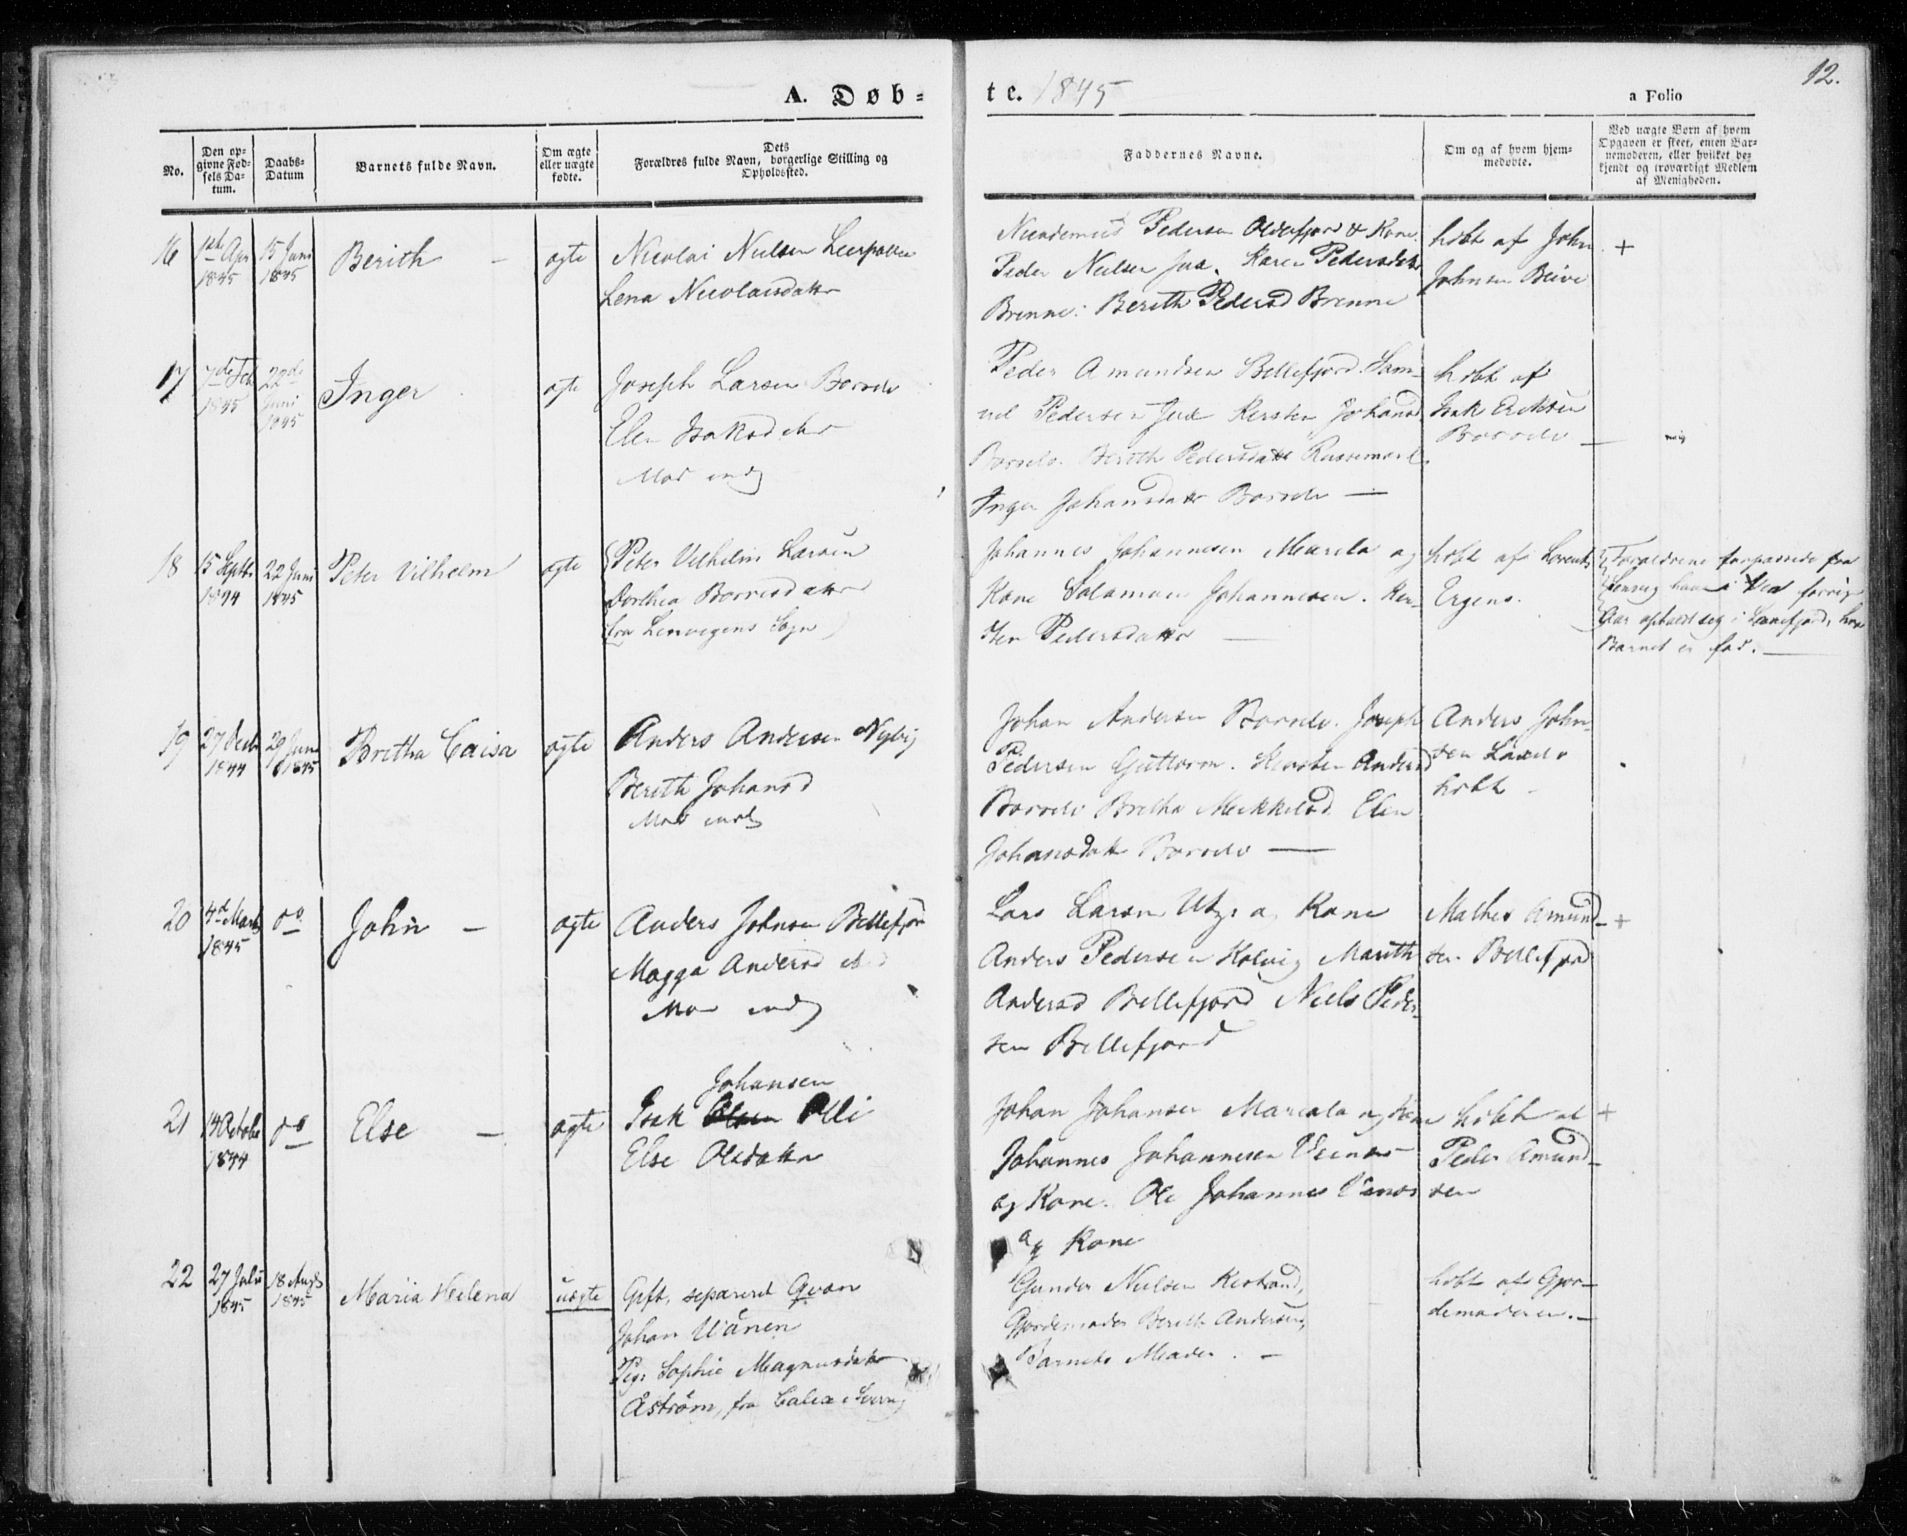 A. Døb-
te. 1845
12.
a Folio
No.
Den op-
givne Fød-
sels Da-
tum.
Daabs-
Datum
Barnets fulde Navn.
Om ægte
eller uægte
fødte.
Dets
Forældres fulde Navn, borgerlige Stilling og
Opholdssted.
Faddernes Navne.
Om og af hvem hjem-
medøbte.
Ved uægte Børn af hvem
Opgaven er skeet, enten Bar-
nemoderen, eller hvilket be-
kjendt og troværdigt Medlem
af Menigheden.
16
1st Apr
1845
15 Juni
1845
Berith
ægte
Nicolai Nielsen Leerpollen
Lena Nicolaisdatter
Pedersen Oldefjord & Kone.
Peder Nielsen Jux. Karen Pedersdatter
Brenne. Berith Pedersd Brenne
hdbt af John
Johnsen Beive
+
17
7de Feb
1845
22de
Juni
1845
Inger
ægte
Joseph Larsen Borselv
Elen Isaksdatter
Mod indg
Peder Amundsen Bellefjord. Sam-
uel Pedersen Jux Kersten Johansd
Borselv. Berith Pedersdatter
Inger Johansdatter Borselv —
hdbt af
Isak Eriksen
Borselv —
18
15 Septbr
1844
22 Juni
1845
Peter Vilhelm
ægte
Peter Vilhelm Larsen
Dorthea Borresdatter
fra Lenvigens Sogn
Johannes Johannesen Mearila og
Kone Salamon Johannesen. Ker-
sten Pedersdatter —
hdbt af Lorents
Ergens.
Forældrene forpassede fra
Lenvig have i forrige
Aar opholdt sig i hvor
Barnet er fød. —
19
27 Decb
1844
29 Juni
1845
Bretha Caisa
ægte
Anders Andersen Nybÿ
Berith Johansd
Mod indg
Johan Andersen Borselv. Joseph
Pedersen Guttorm. Kersten Andersd
Borselv Bretha Mikkelsd Elen
Johansdatter Borselv —
Anders John-
sen Laxelv
hdbt —
20
4de Marts
1845
do
John —
ægte
Anders Johnsen Bellefjor
Magga Andersd
Mod indg
Lars Larsen og Kone
Anders Pedersen Kolvig Marith
Andersd Bellefjord Niels Peder-
sen Bellefjord
Mathis Amund-
sen Bellefjord
+
21
14 Octobr
1844
do
Else —
ægte
Johansen
Isak Olsen Olli
Else Olsdatter
Johan Johansen Mareala og Kone
Johannes Johannesen
og Kone. Ole Johannes
og Kone
hdbt af
Peder Amund-
sen
+
22
27 Juli
1845
18 Augs
1845
Maria Helena
uægte
Gift, separeret Qvæn
Johan Uänen
Pige Sophie Magnusdatter
Åström, fra Calix i Sverig
Gunder Nielsen Kistrand,
Gjordemoder Berith Andersen,
Barnets Moder. —
hdbt af Gjor-
demoderen. —